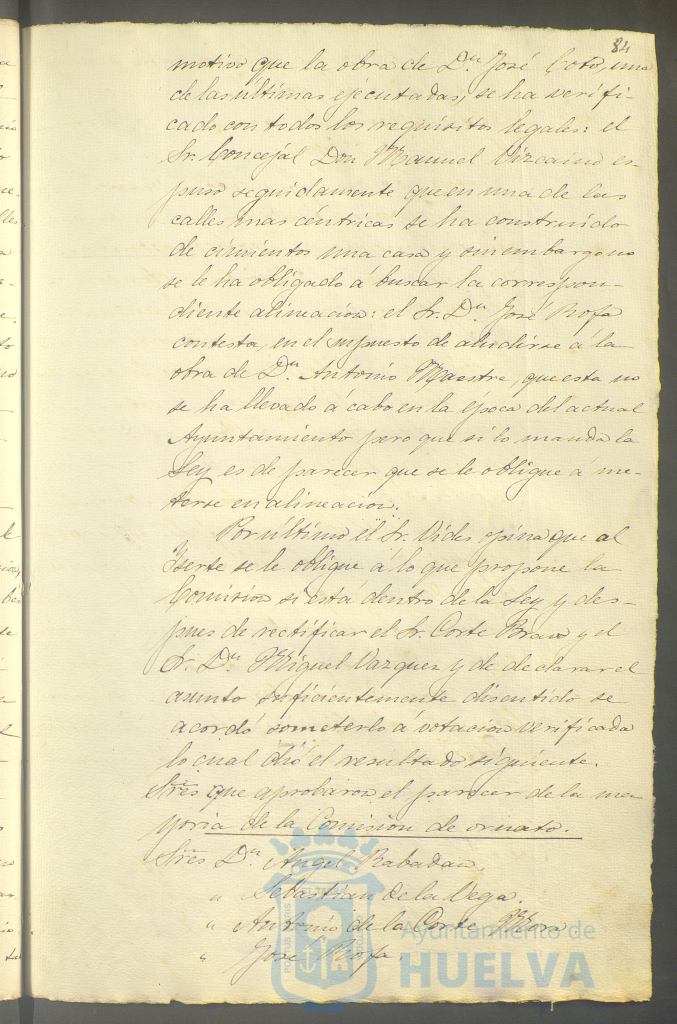 84
motivo que la obra de Dn José Coto, una
de las últimas ejecutadas, se ha verifi-
cado con todos los requisitos legales: el
Sr. Concejal Don Manuel Vizcaino es-
puso seguidamente que en una de las
calles mas céntricas se ha construido
de cimientos una casa y sin embargo no
se le ha obligado á buscar la correspon-
diente alineacion: el Sr. Dn José Rofa
contesta, en el supuesto de aludirse á la
obra de Dn Antonio Maestre, que esta no
se ha llevado á cabo en la época del actual
Ayuntamiento pero que si lo manda la
Ley es de parecer que se le obligue á me-
terse en alineacion.
Por último el Sr. Vides opina que al
se le obligue á lo que propone la
Comision si está dentro de la Ley y des-
pues de rectificar el Sr. Corte Bravo y el
Sr. Dn Miguel Vazquez y de declarar el
asunto suficientemente discutido se
acordó someterlo á votacion verificada
lo cual dió el resultado siguiente.
Sres que aprobaron el parecer de la ma
yoria de la Comision de ornato.
Sres Dn Angel Rabadan.
" Sebastian de la Vega.
" Antonio de la Corte Mora.
" José Rofa.
Ayuntamiento de
HUELVA